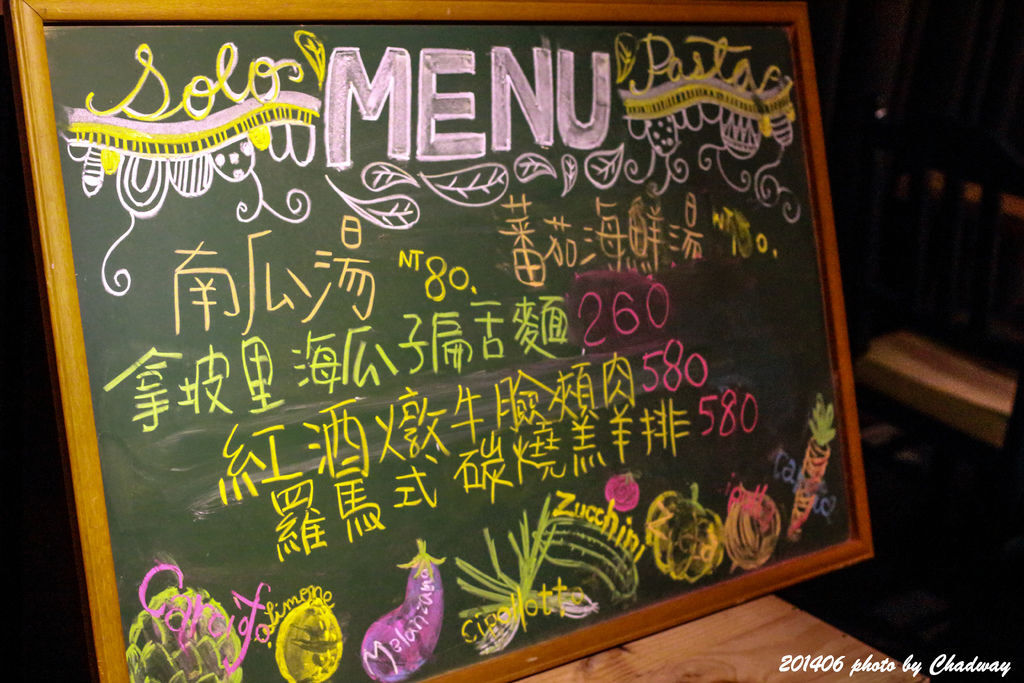 Solo MENU Pasta
南瓜湯 NT80.
蕃茄海鮮湯 NT
拿坡里海瓜子扁舌麵 260
紅酒燉牛臉頰肉 580
羅馬式碳燒羔羊排 580
Zucchini
limone
Melanzana
cipollotto
201406 photo by Chadway